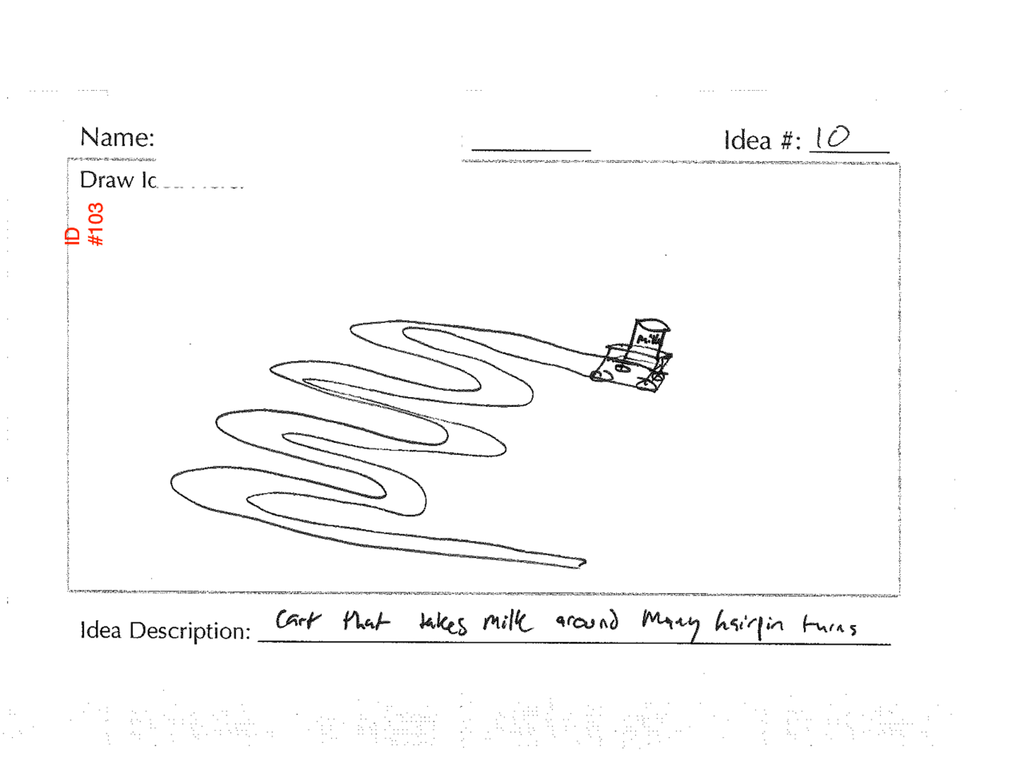 Name:
Idea #: 10
Draw
ID
#103
Milk
Idea Description: Cart that takes milk around Many hairpin turns